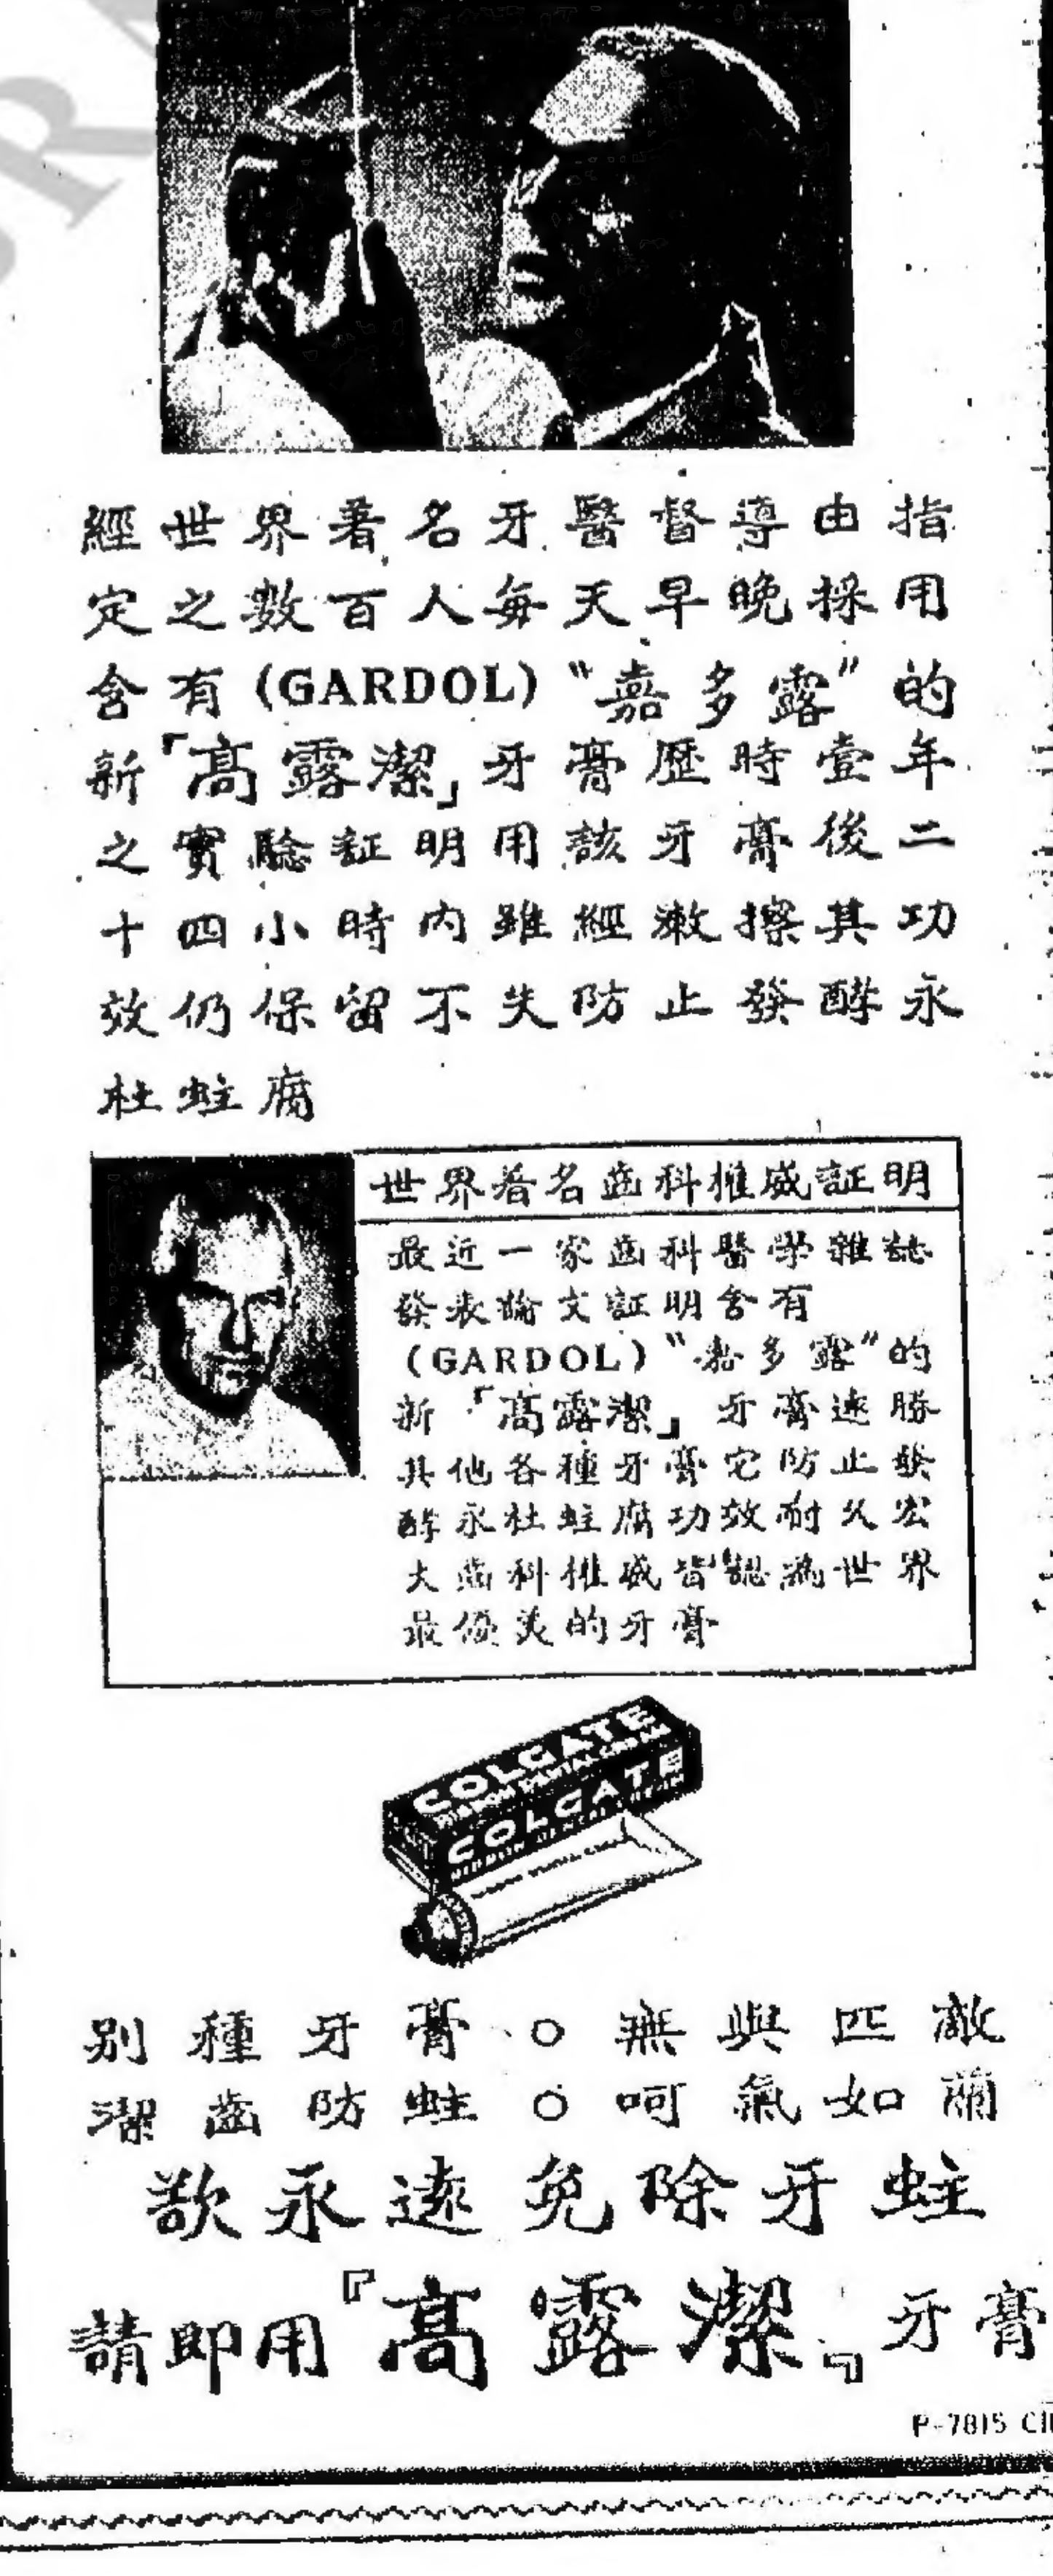 經世界著名牙醫督導由指
定之數百人每天早晚採用
含有(GARDOL)“嘉多露”的
新「高露潔」牙膏歷時壹年
之實驗証明用該牙膏後二
十四小時內雖經漱擦其功
效仍保留不失防止發酵永
杜蛀腐
世界著名齒科權威証明
最近一家齒科醫學雜誌
發表論文証明含有
(GARDOL)“嘉多露”的
新「高露潔」牙膏遠勝
其他各種牙膏它防止發
酵永杜蛀腐功效耐久宏
大齒科權威皆認為世界
最優美的牙膏
COLGATE
COLGATE
RIBBON DENTAL CREAM
別種牙膏○無與匹敵
潔齒防蛀○呵氣如蘭
欲永遠免除牙蛀
請即用『高露潔』牙膏
P-7815